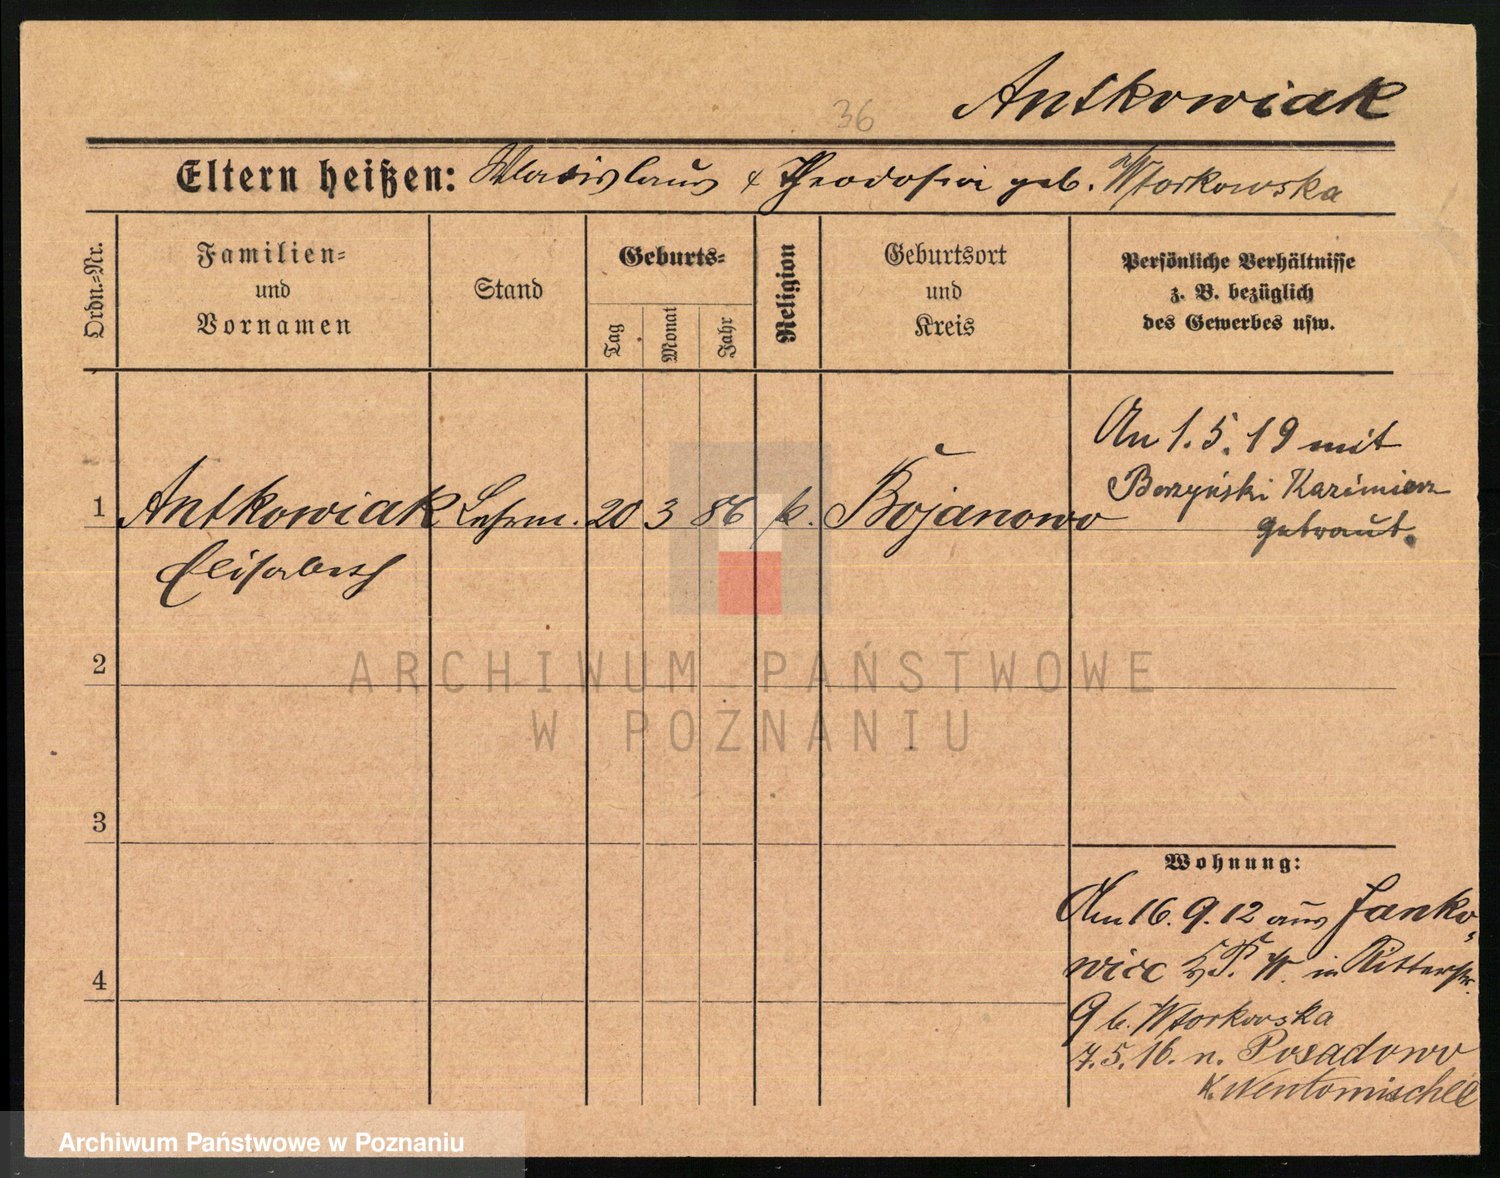 36
Antkowiak
Eltern heißen: Wladislaus & Theodosia geb. Wtorkowska
Ordn.-Nr.
Familien-
und
Vornamen
Stand
Geburts-
Tag
Monat
Jahr
Religion
Geburtsort
und
Kreis
Persönliche Verhältnisse
z. B. bezüglich
des Gewerbes usw.
1 Antkowiak Lehrin. 20 3 86 k. Bojanowo
Elisabeth
An 1.5.19 mit
Borzyński Kazimierz
getraut.
2
3
4
Wohnung:
Am 16.9.12 aus Janko-
wice P. W. in Ritterstr.
9 b. Wtorkowska
7.5.16. n. Posadowo
K. Neutomischel
ARCHIWUM PAŃSTWOWE
W POZNANIU
Archiwum Państwowe w Poznaniu